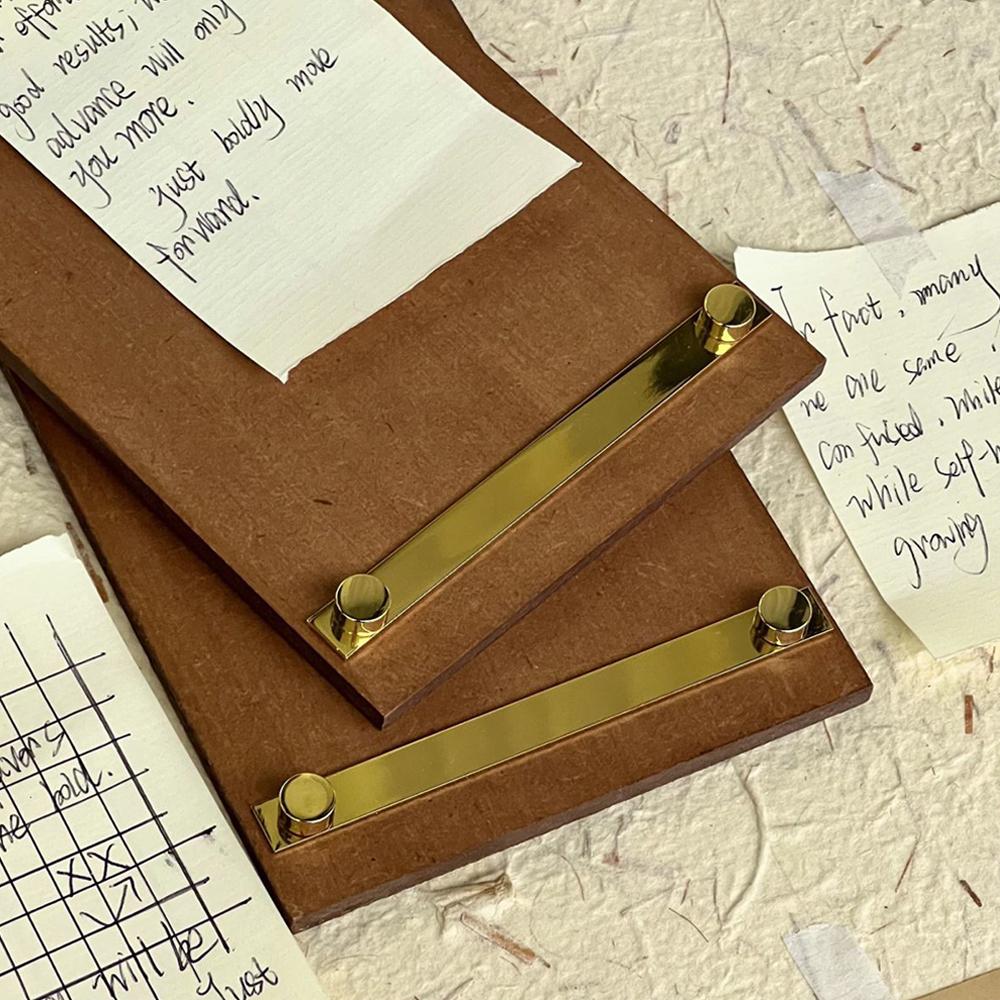 good results;
advance will only
you more.
just boldly move
forward.
In fact, many
one same
confused, while
while self-
growing
bold.
XX
will be
Just